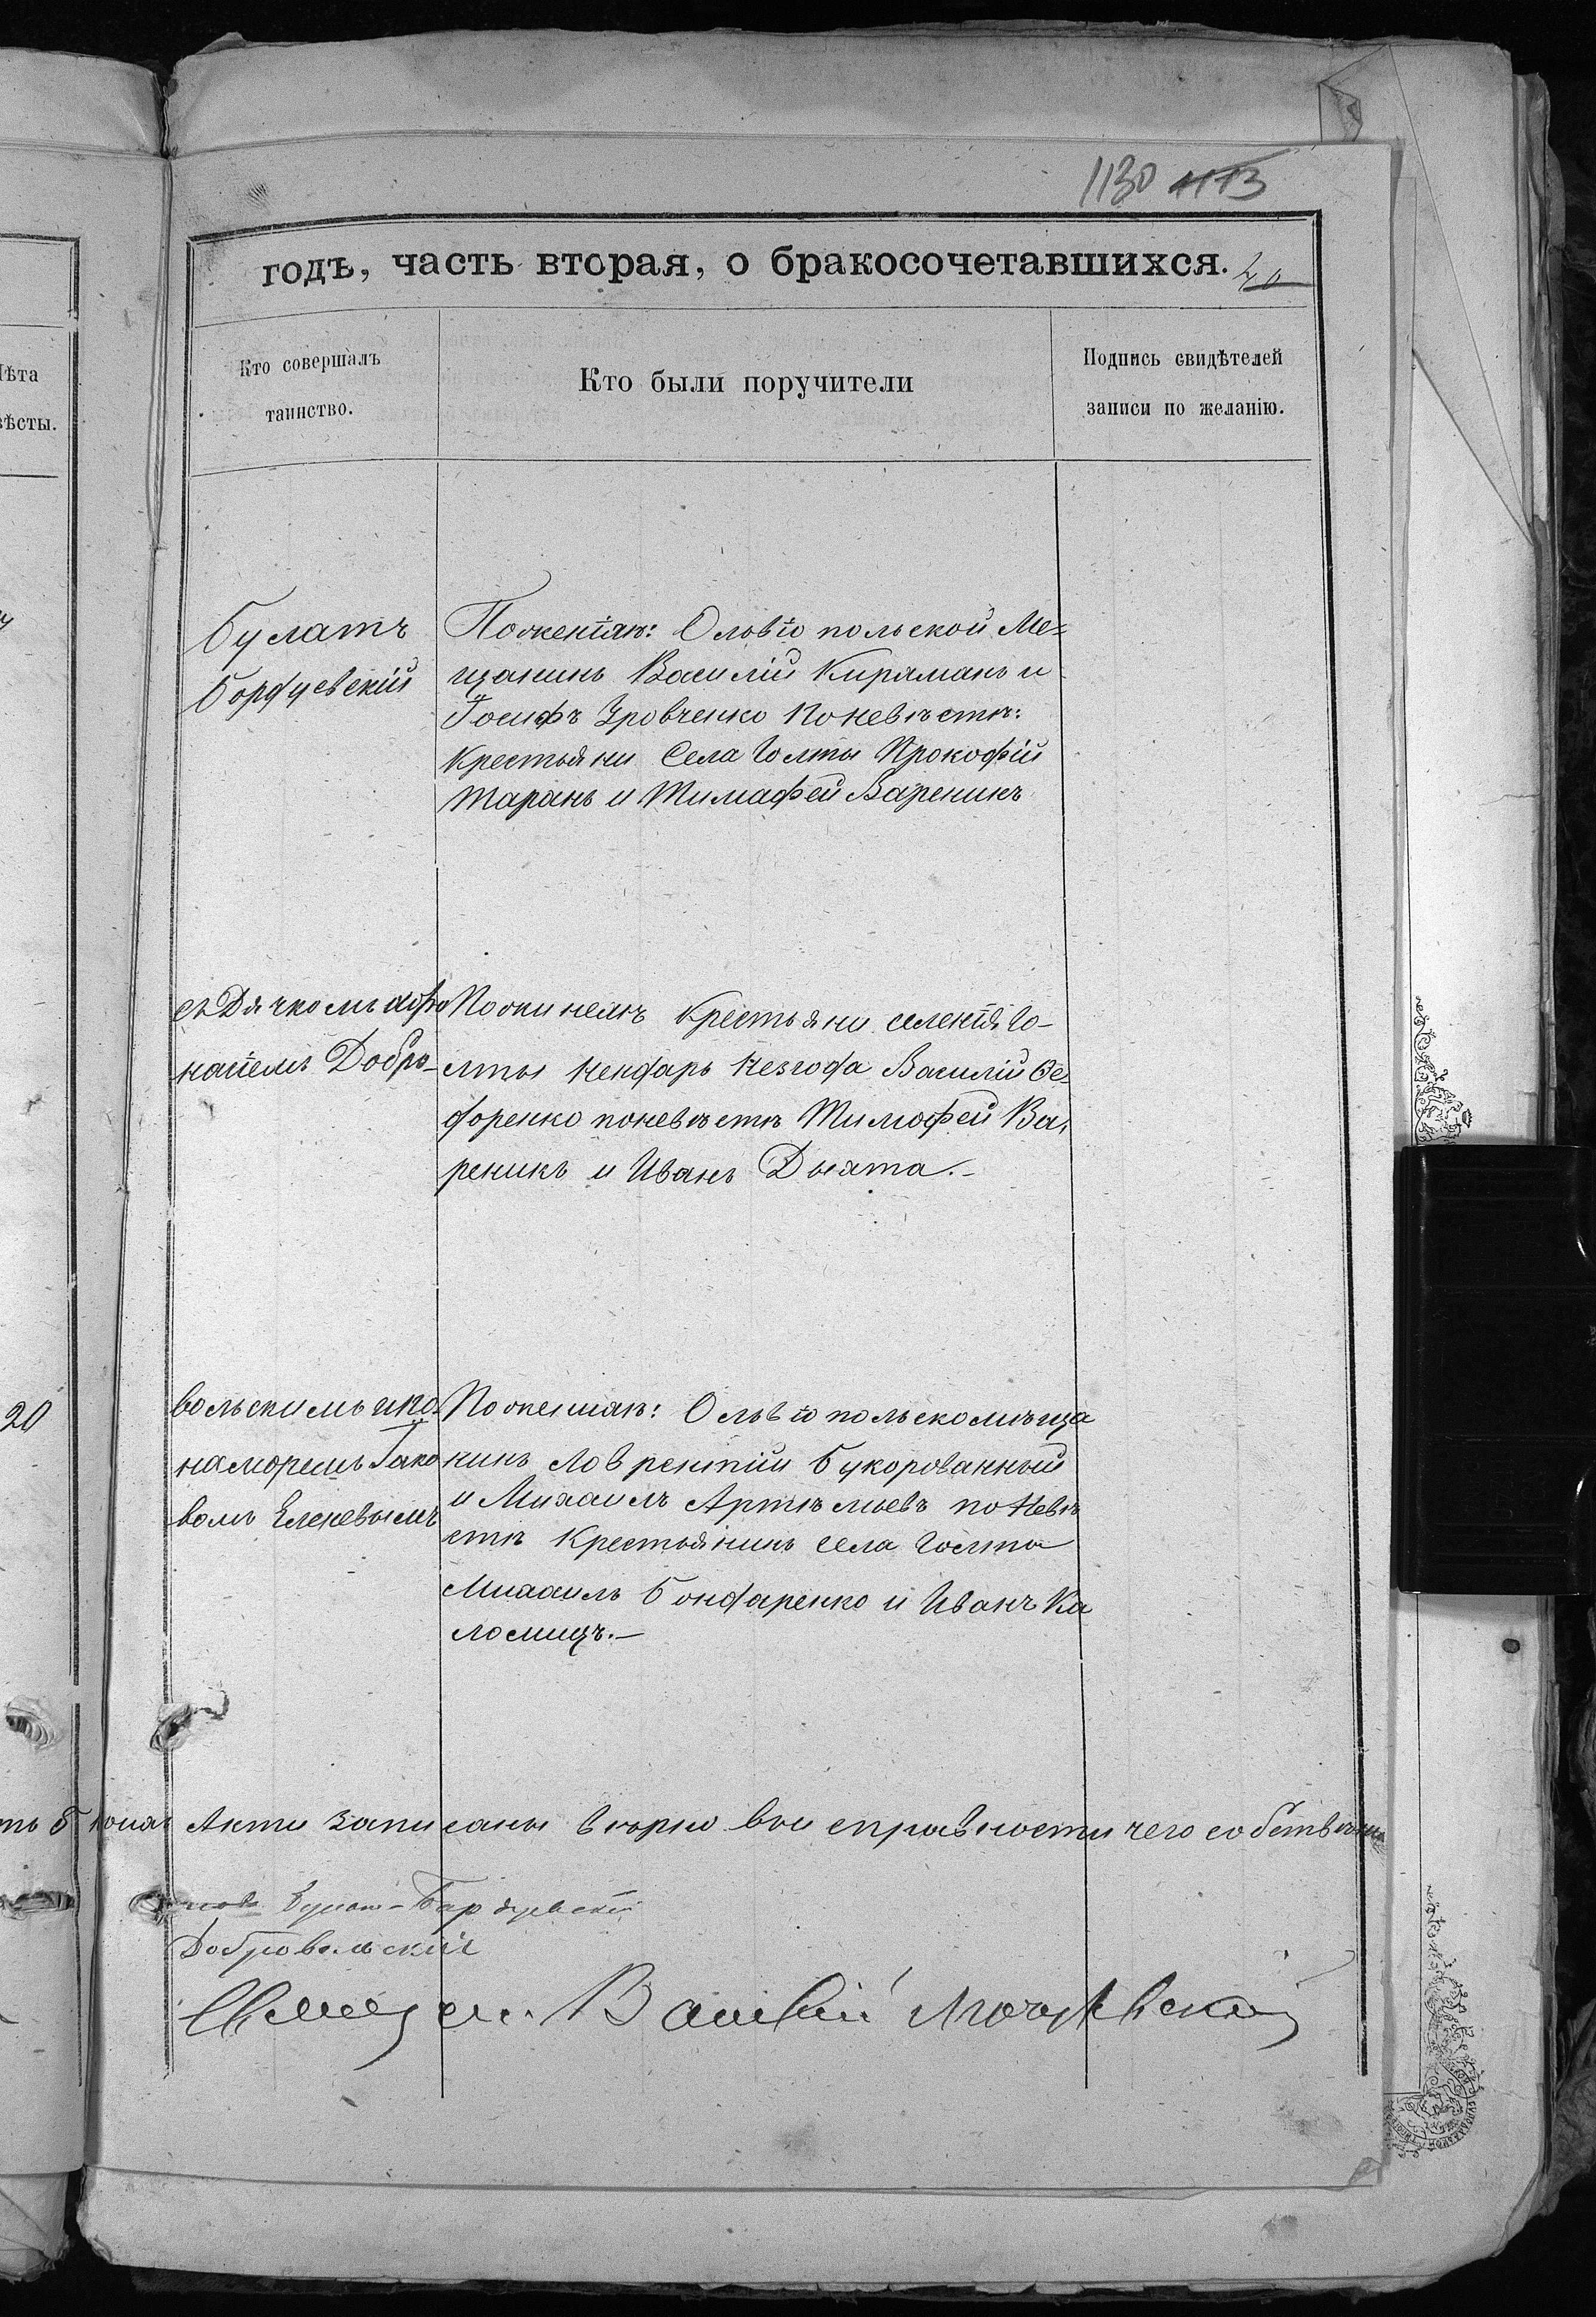 1130 1113
годъ, часть вторая, о бракосочетавшихся. 40
лѣта
вѣсты.
Кто совершалъ
таинство.
Кто были поручители
Подпись свидѣтелей
записи по желанію.
Булатъ
Бордуевскій
Поженіхѣ: Олвіопольской Ме-
щанинъ Василій Киряманъ и
Іосифъ Уровченко Поневѣстѣ:
Крестьяни Села Голты Прокофій
Таранъ и Тимафей Вареникъ
съ Дячкомъ
Добро-
Крестьяни селенія Го-
лты Василій Ѳе-
форенко поневѣстѣ Тимофей Ва-
реникъ и Иванъ Дыята.-
20
вольскимъ ипо-
наморемъ Іако
вомъ Еленевымъ
Ольвіопольскомѣща
нинъ Лаврентій Букорованный
и Михаилъ Артѣмьевъ по Невѣ
стѣ Крестьянинъ села Голты
Михаилъ Бондаренко и Иванъ Ка
ломицъ.-
Акти записаны вѣрно вои справности чего собствен
Булат-Бардуевскій
Добровольскій